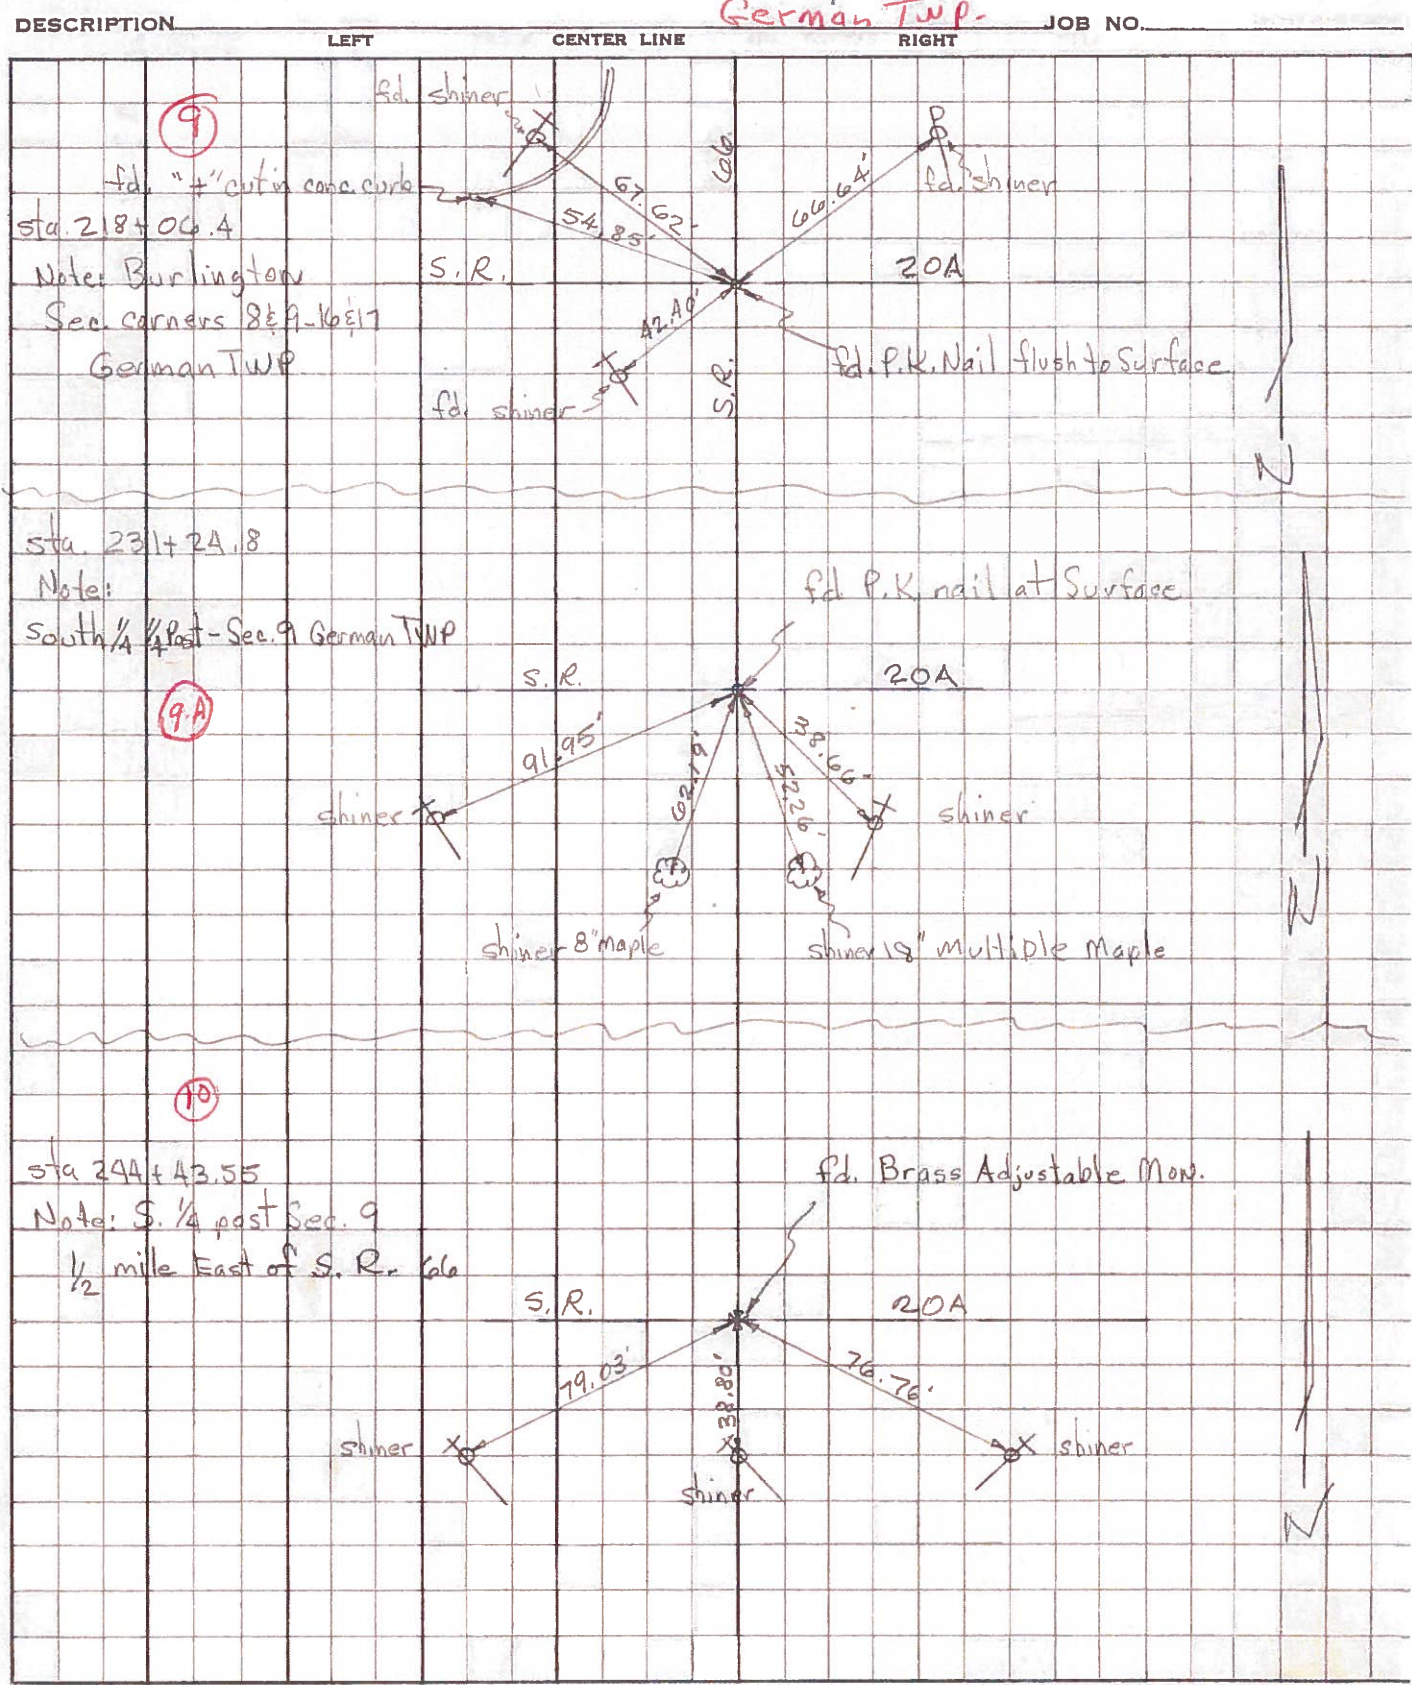 German TWP.
DESCRIPTION JOB NO.
LEFT CENTER LINE RIGHT
9
fd. shiner
fd. "+" cut in conc. curb
sta. 218+06.4
Note: Burlington
Sec. corners 8 & 9-16 & 17
German TWP
67.62'
54.85'
66.
66.64'
P
fd. shiner
S.R. 20A
42.40'
S.R.
fd. P.K. Nail flush to Surface
fd. shiner
N
sta. 231+24.8
Note:
South 1/4 1/4 Post - Sec. 9 German TWP
9A
fd P.K nail at Surface
S.R. 20A
91.95'
62.19'
52.26'
38.66'
shiner
shiner
shiner 8" maple
shiner 18" Multiple Maple
N
10
sta 244+43.55
Note: S. 1/4 post Sec. 9
1/2 mile East of S. R. 66
fd. Brass Adjustable Mon.
S.R. 20A
79.03'
38.80'
76.76'
shiner
shiner
shiner
N